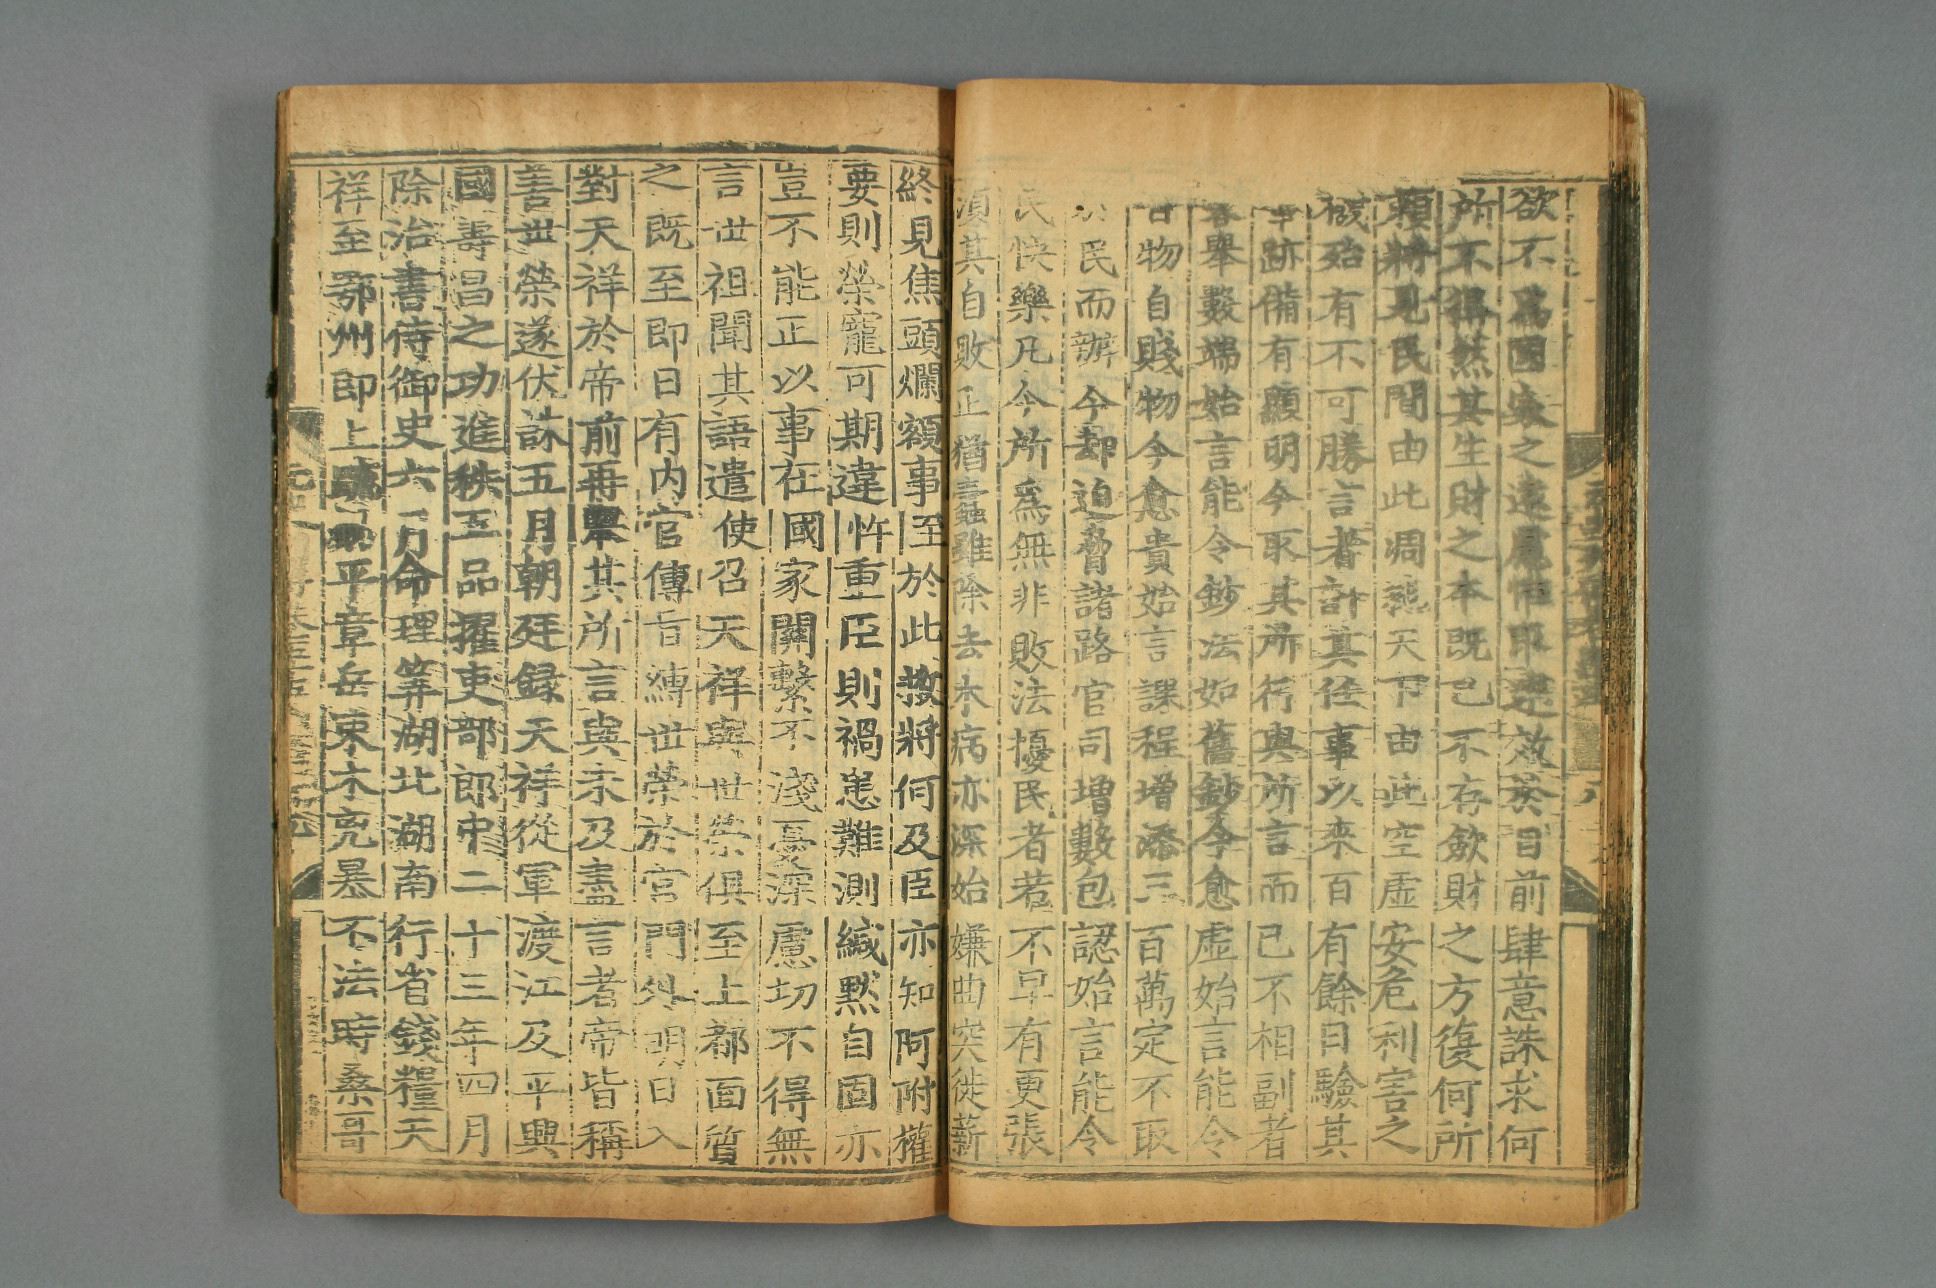 欲不爲國家之遠慮惟取速效於目前肆意誅求何
所不得然其生財之本既已不存歛財之方復何所
賴將見民間由此凋耗天下由此空虛安危利害之
機殆有不可勝言者計其任事以來百有餘日驗其
事跡備有顯明今取其所行與所言而已不相副者
畧舉數端始言能令鈔法如舊鈔今愈虛始言能令
百物自賤物今愈貴始言課程增添三百萬定不取
於民而辦今却迫脅諸路官司增數包認始言能令
民快樂凡今所爲無非敗法擾民者若不早有更張
須其自敗正猶蠹雖除去木病亦深始嫌曲突徙薪
終見焦頭爛額事至於此救將何及臣亦知阿附權
要則榮寵可期違忤重臣則禍患難測緘默自固亦
豈不能正以事在國家關繫不淺憂深慮切不得無
言世祖聞其語遣使召天祥與世榮俱至上都面質
之既至即日有内官傳旨縛世榮於宮門外明日入
對天祥於帝前再舉其所言與未及盡言者帝皆稱
善世榮遂伏誅五月朝廷録天祥從軍渡江及平興
國壽昌之功進秩五品擢吏部郎中二十三年四月
除治書侍御史六月命理筭湖北湖南行省錢糧天
祥至鄂州即上疏平章岳束木兇暴不法時桑哥